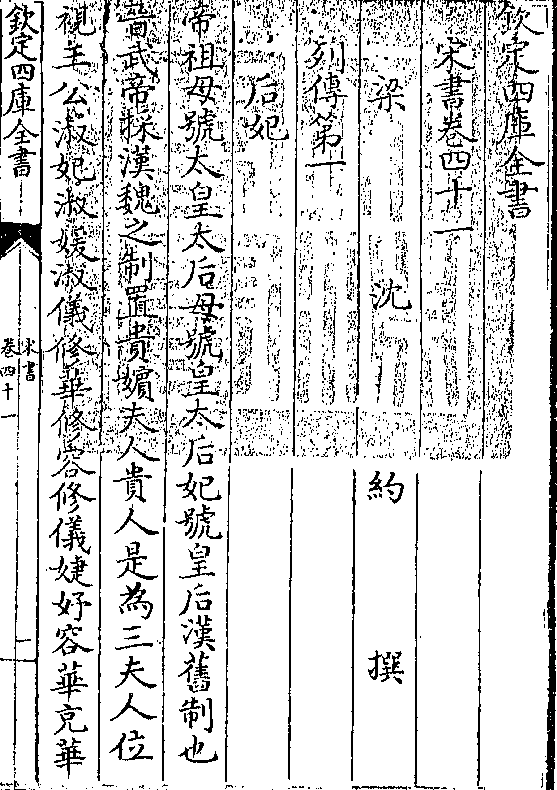 欽定四庫全書
宋書卷四十一
梁 沈 約 撰
列傳第一
后妃
帝祖母號太皇太后母號皇太后妃號皇后漢舊制也
晉武帝採漢魏之制置貴嬪夫人貴人是為三夫人位
視三公淑妃淑媛淑儀修華修容修儀婕妤容華充華
欽定四庫全書
宋書
卷四十一
一